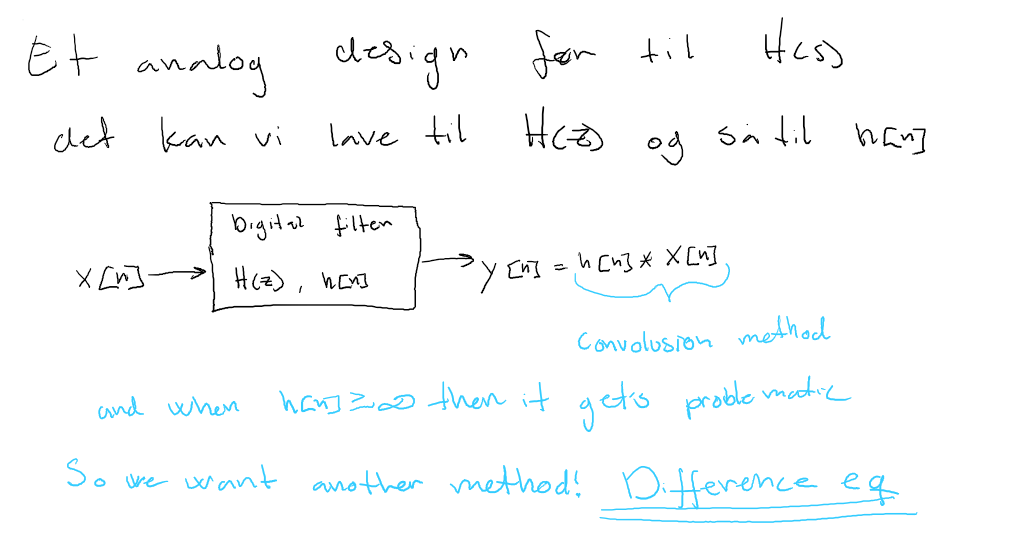 Et analog design før til H(s)
det kan vi lave til H(z) og så til h[n]
Digital filter
x[n] → H(z), h[n] → y[n] = h[n] * x[n]
Convolusion method
and when h[n] ≥ ∞ then it get's problematic
So we want another method! Difference eq